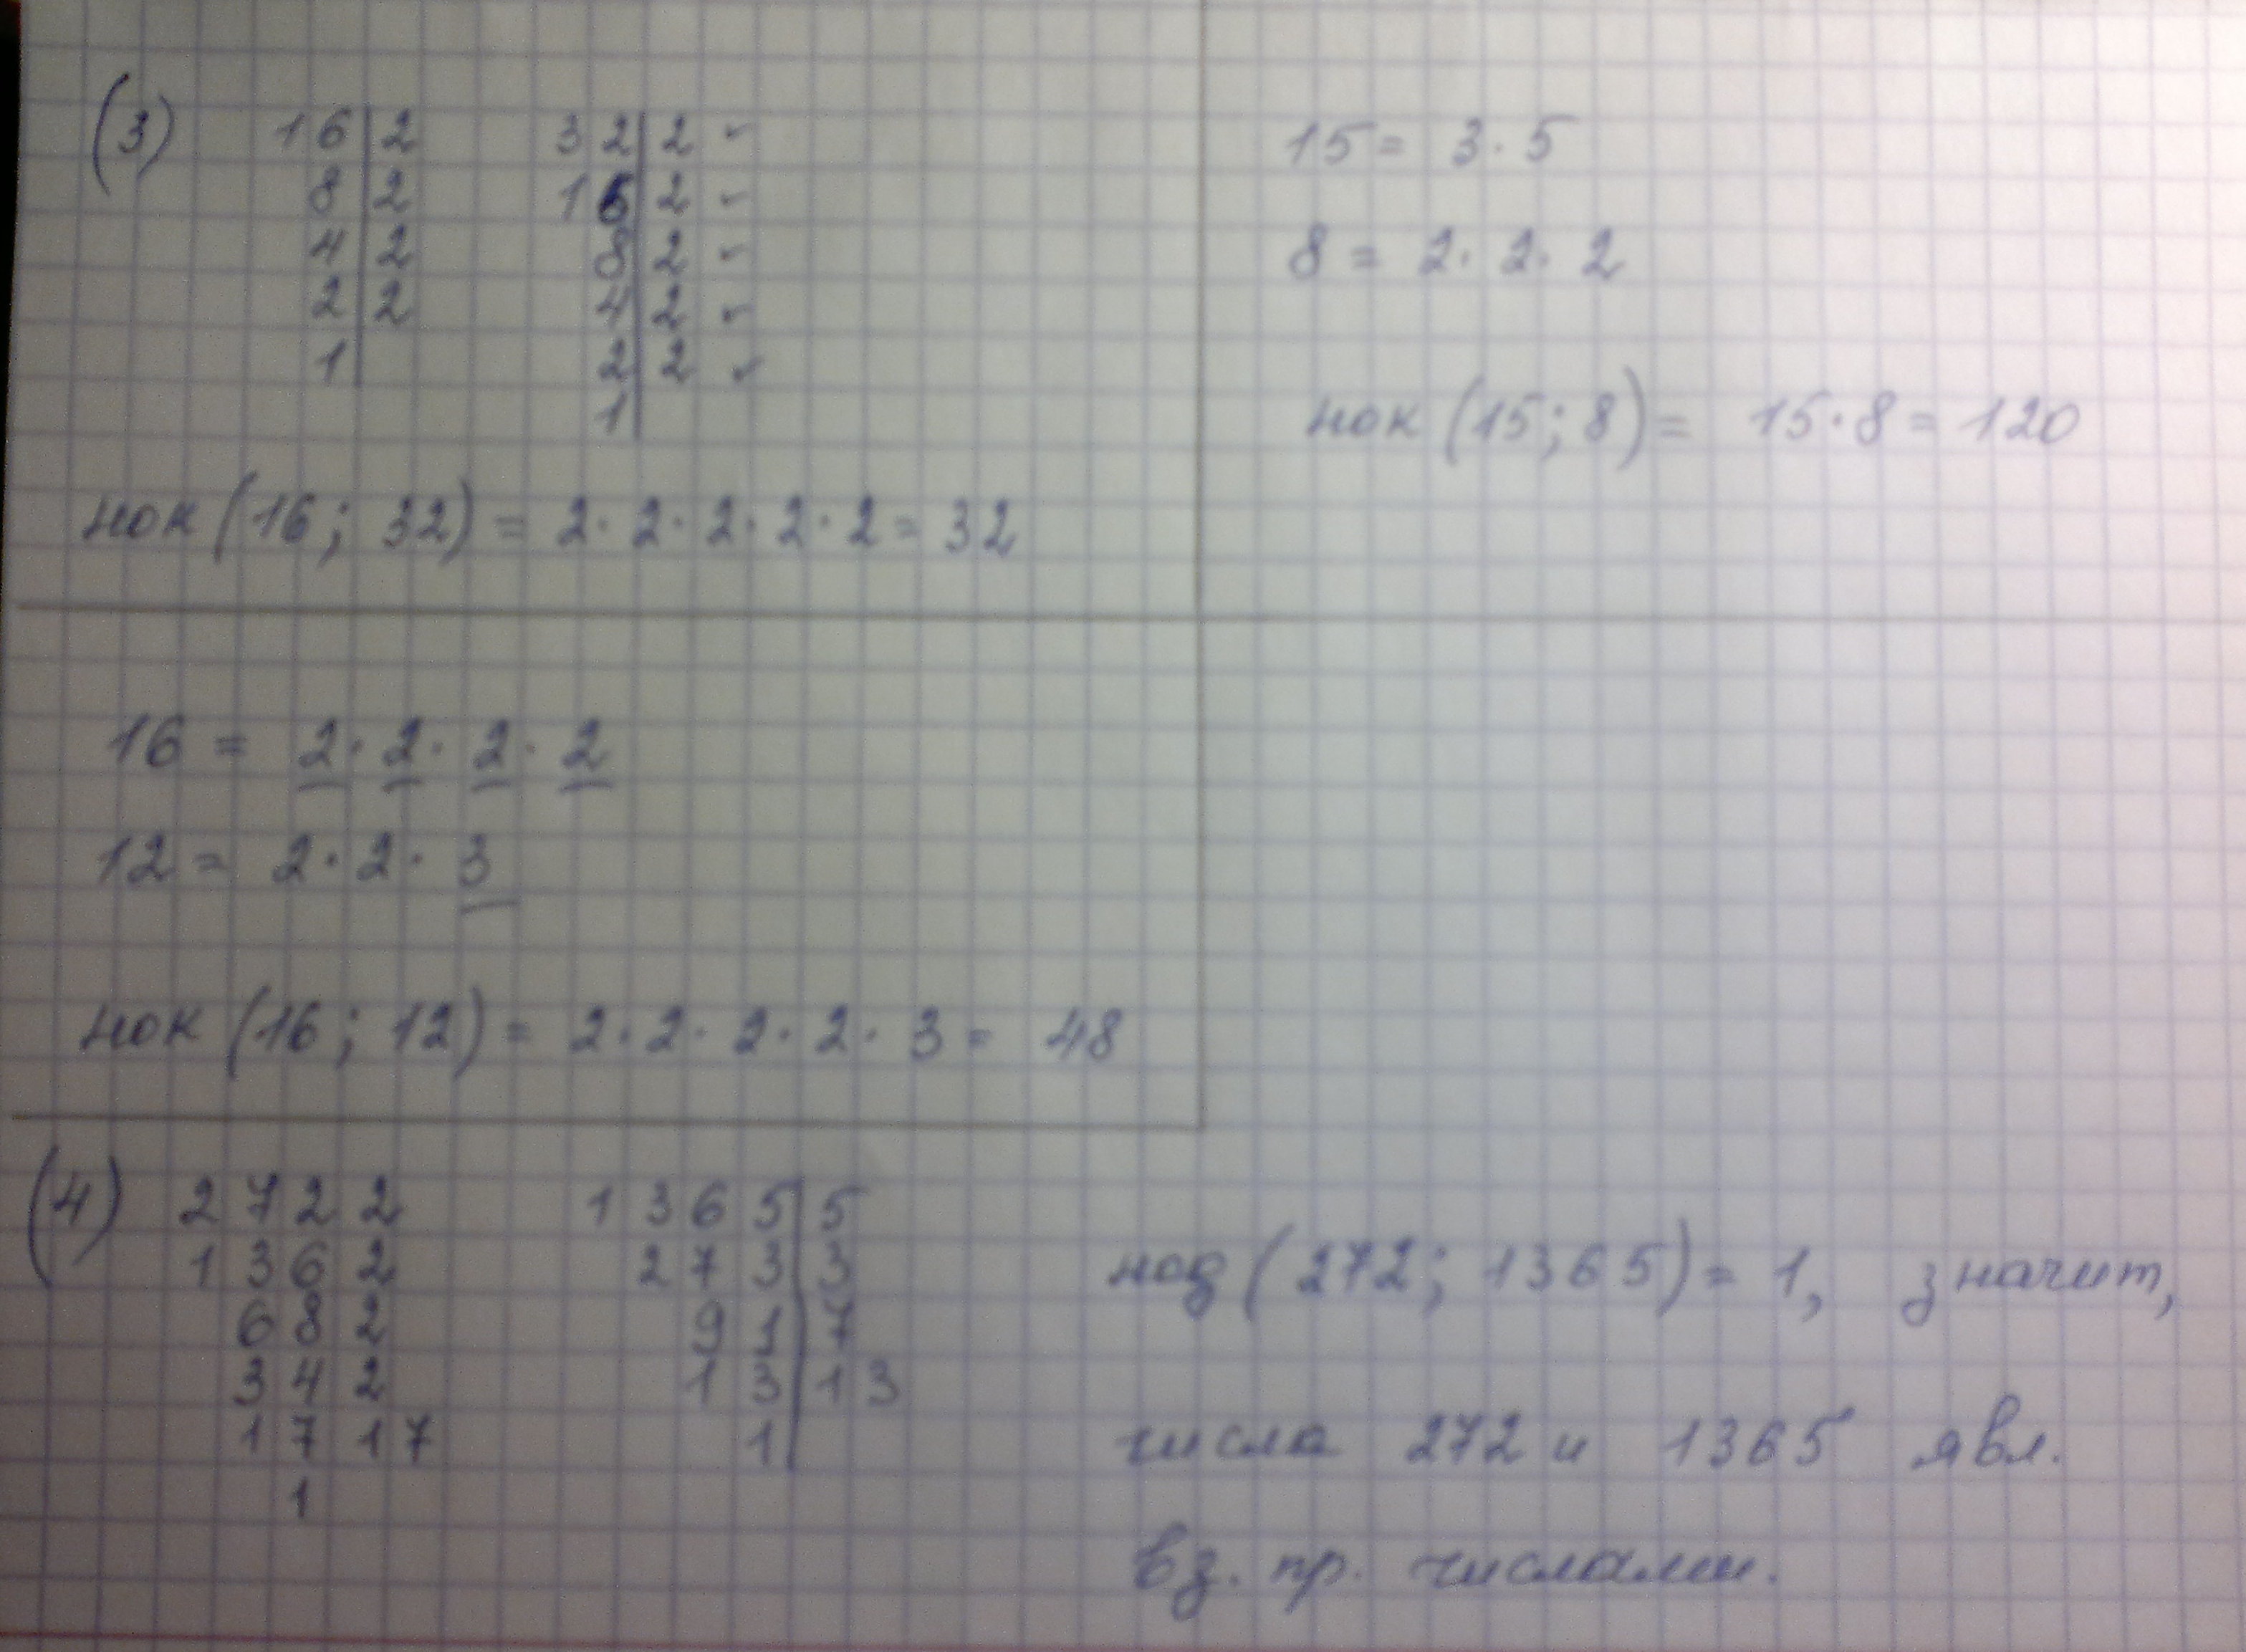 (3) 16|2 32|2 ✓
8|2 16|2 ✓
4|2 8|2 ✓
2|2 4|2 ✓
1| 2|2 ✓
1|
нок (16; 32) = 2·2·2·2·2 = 32
15 = 3·5
8 = 2·2·2
нок (15; 8) = 15·8 = 120
16 = 2·2·2·2
12 = 2·2·3
нок (16; 12) = 2·2·2·2·3 = 48
(4) 272 2 1365|5
136 2 273|3
68 2 91|7
34 2 13|13
17 17 1|
1
нод (272; 1365) = 1, значит,
числа 272 и 1365 явл.
вз. пр. числами.